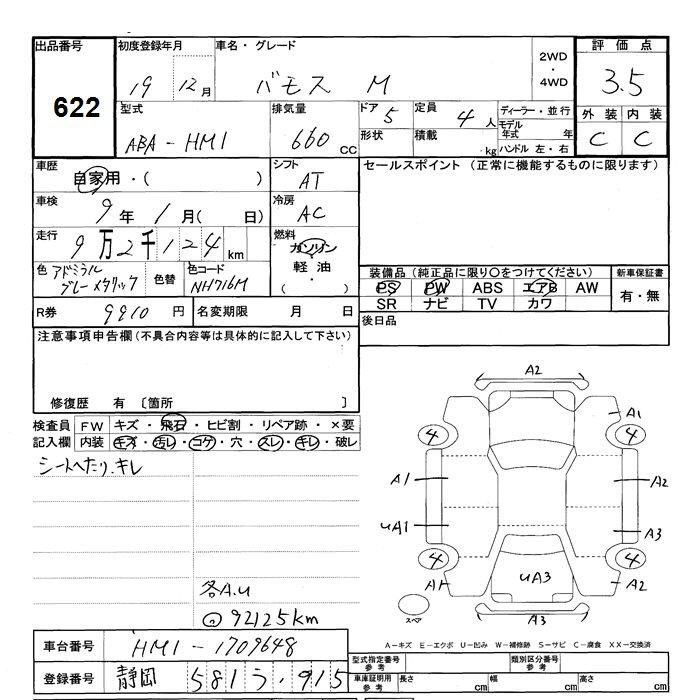 出品番号 初度登録年月 車名・グレード 2WD・4WD 評価点
622 19 12月 バモス M 3.5
型式 排気量 ドア 5 定員 4人 ディーラー・並行 外装 内装
ABA-HM1 660cc 形状 積載 kg モデル年式 年 C C
ハンドル 左・右
車歴 自家用・( ) シフト AT セールスポイント (正常に機能するものに限ります)
車検 9年 1月( 日) 冷房 AC
走行 9万2千124km 燃料 ガソリン 軽油・
色 アドミラルグレーメタリック 色替 色コード NH716M
装備品 (純正品に限り○をつけてください) 新車保証書
PS PW ABS エアB AW 有・無
SR ナビ TV カワ
R券 9910円 名変期限 月 日 後日品
注意事項申告欄 (不具合内容等は具体的に記入して下さい)
修復歴 有 〔箇所 〕
検査員 FW キズ・飛石・ヒビ割・リペア跡・×要
記入欄 内装 キズ・汚レ・コゲ・穴・スレ・キレ・破レ
シートへたり、キレ
各A.U
92125km
A2
A1
4 4
A1 A2
UA1 A3
4 4
A1 UA3 A2
スペア A3
A-キズ E-エクボ U-凹み W-補修跡 S-サビ C-腐食 XX-交換済
車台番号 HM1-1709648 型式指定番号 参考 類別区分番号 参考
登録番号 静岡 581 う・915 車庫証明用 参考 長さ cm 幅 cm 高さ cm